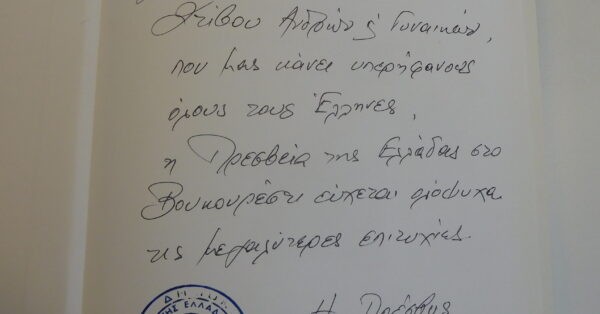 Στίβου Ανδρών & Γυναικών,
που μας κάνει υπερήφανους
όλους τους Έλληνες,
η Πρεσβεία της Ελλάδας στο
Βουκουρέστι εύχεται ολόψυχα
τις μεγαλύτερες επιτυχίες.
Η Πρέσβης
ΗΣ ΕΛΛΑΔ